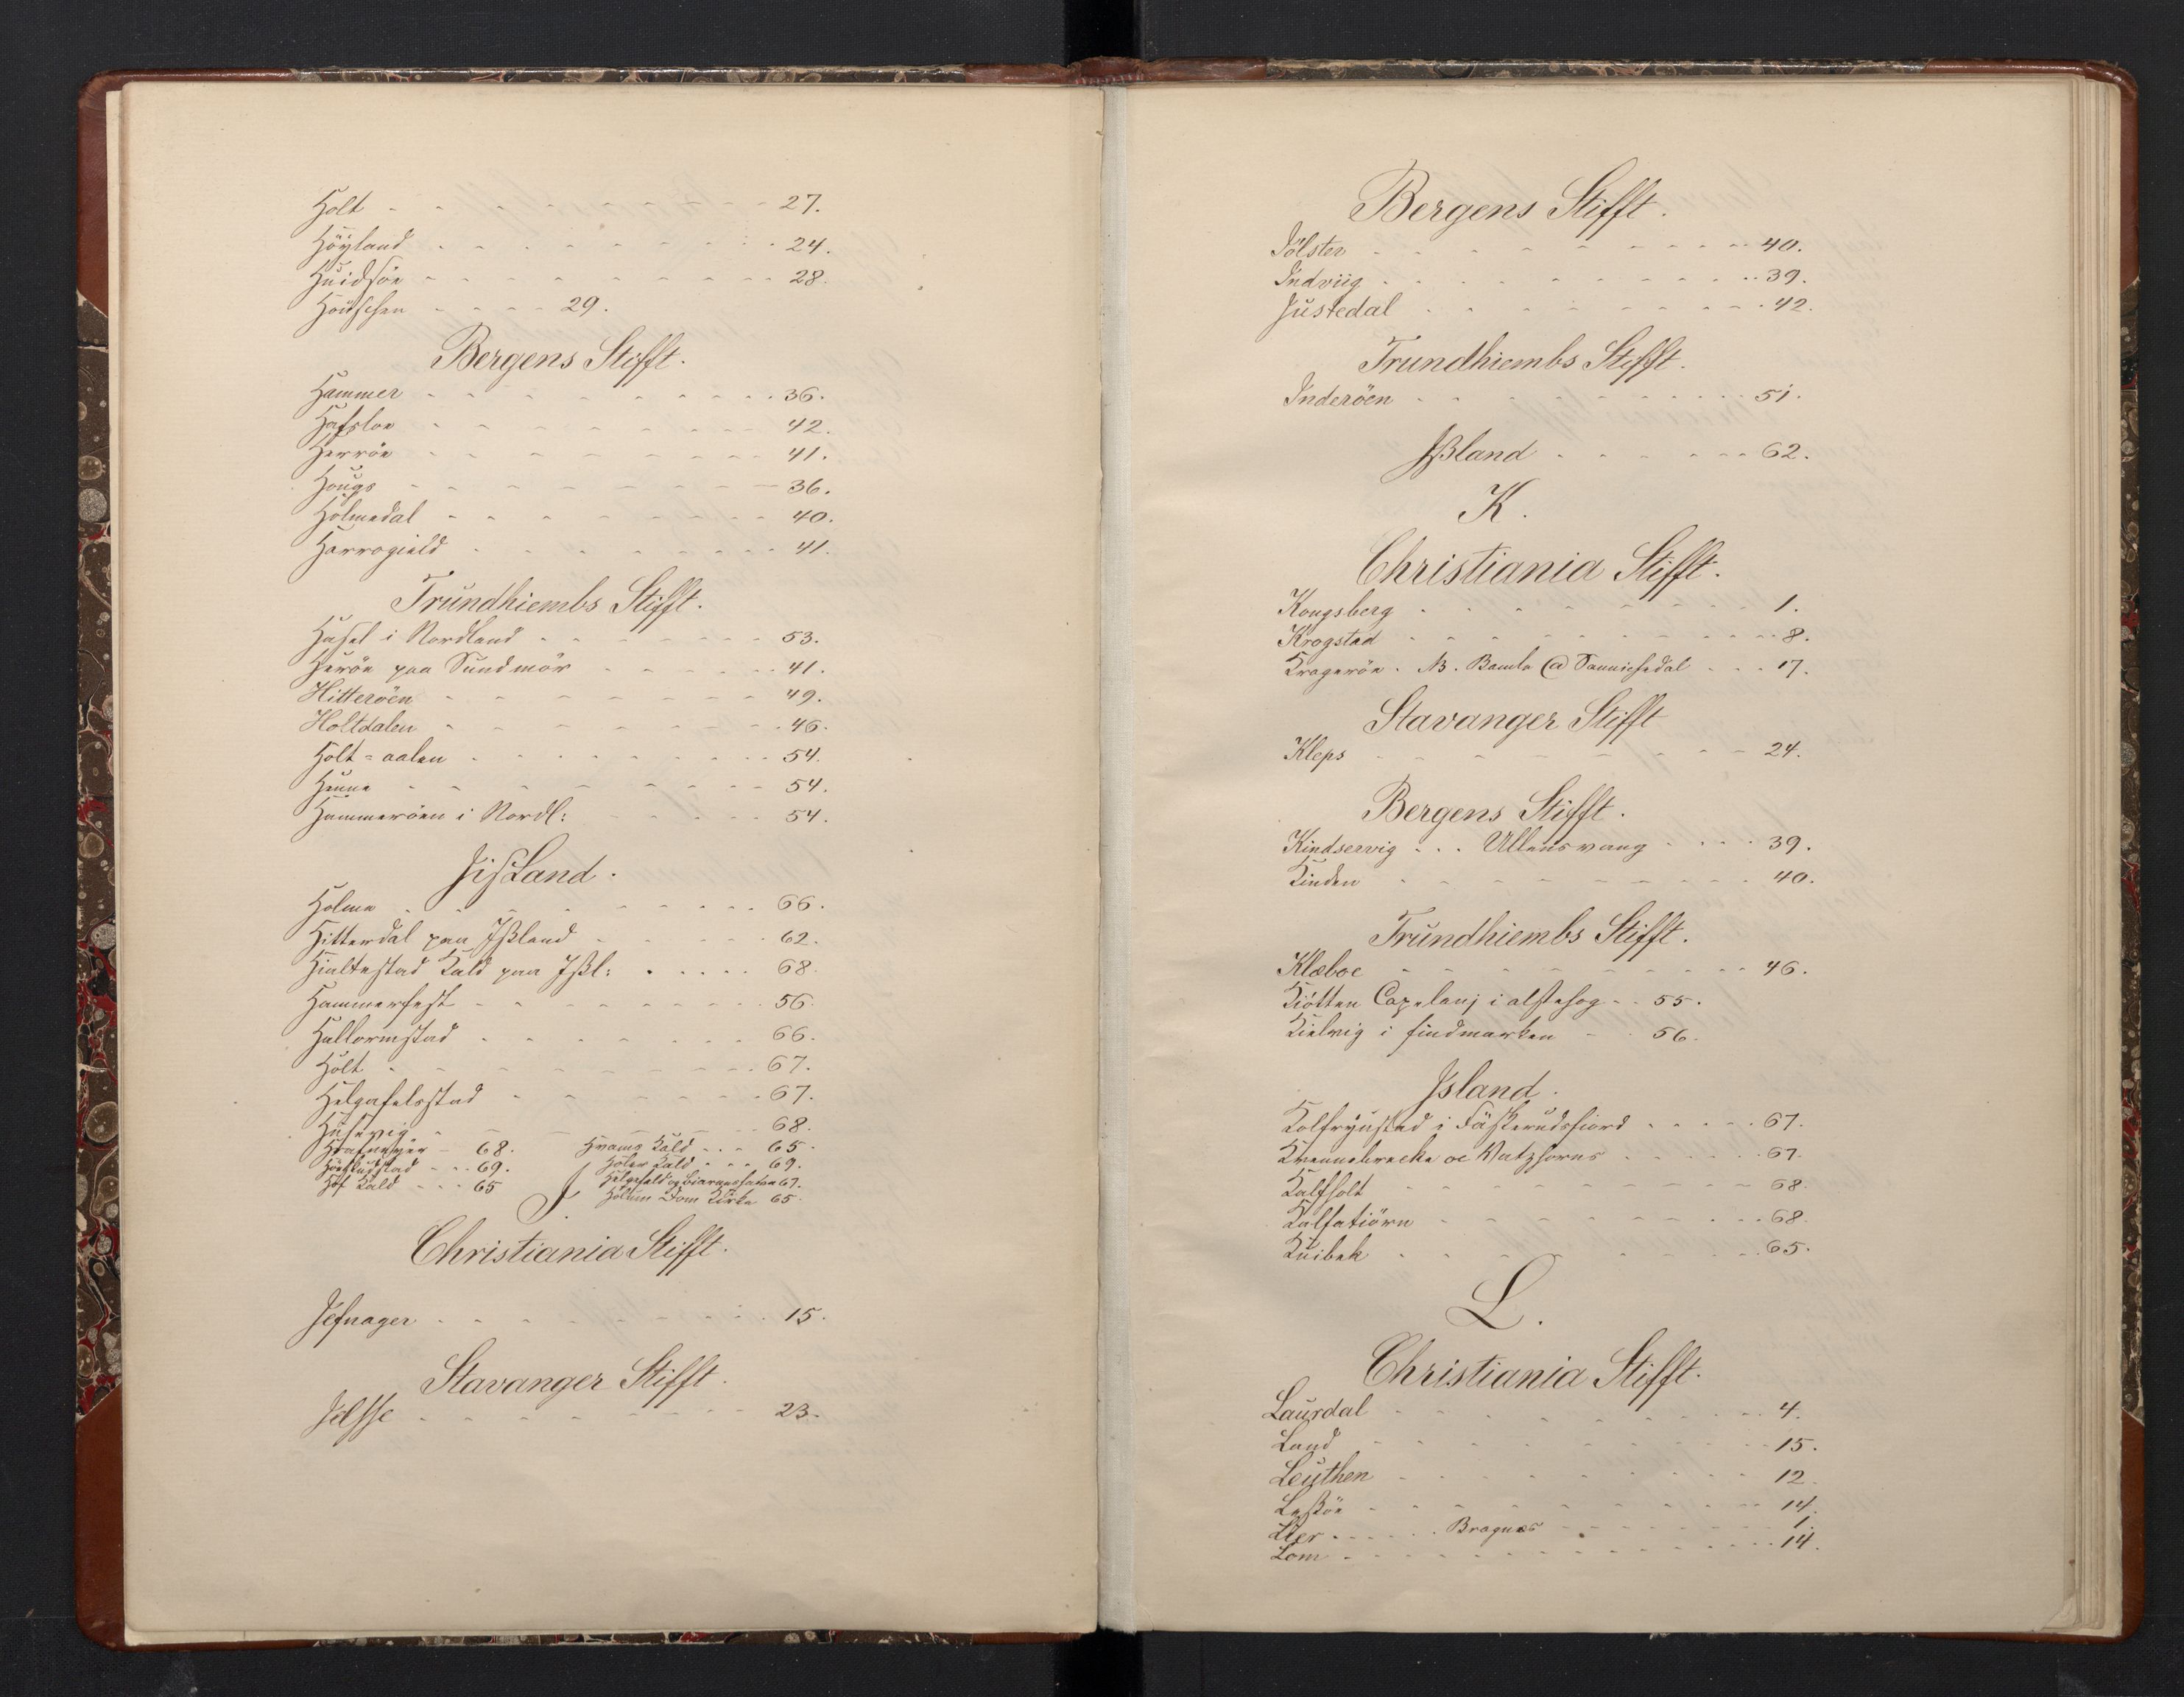 Holt - - - - - - - - - 27.
Höyland - - - - - - - - 24.
Huidsöe - - - - - - - - 28.
- - - - 29.
Bergens Stifft.
Hammer - - - - - - - - 36.
Hafsloe - - - - - - - - 42.
Herröe - - - - - - - - 41.
Hougs - - - - - - - - 36.
Holmedal - - - - - - - - 40.
Harrogield - - - - - - - - 41.
Trundhiembs Stifft.
Hasel i Nordland - - - - - - - 53.
Heröe paa Sundmör - - - - - - 41.
Hitteröen - - - - - - - - 49.
Holtdalen - - - - - - - - 46.
Holt=aalen - - - - - - - - 54.
Henne - - - - - - - - 54.
Hammeröen i Nordl: - - - - - 54.
JisLand.
Holme - - - - - - - - 66.
Hitterdal paa Jßland - - - - - 62.
Hialtestad Kald paa Jßl: - - - - - 68.
Hammerfest - - - - - - - - 56.
Hallormstad - - - - - - - 66.
Holt - - - - - - - - 67.
Helgafelsstad - - - - - - 67.
Husevig - - - - - - - 68.
- 68. Hvams Kald - - - 65.
- - 69. Holer Kald - - - 69.
Hof Kald - - - 65 67.
J. Holum Dom Kirke 65.
Christiania Stifft.
Jefnager - - - - - - - - 15.
Stavanger Stifft.
Jelsse - - - - - - - - 23.
Bergens Stifft.
Jölster - - - - - - - - 40.
Indviig - - - - - - - - 39.
Justedal - - - - - - - - 42.
Trundhiembs Stifft.
Inderöen - - - - - - - - 51.
Jßland - - - - - - 62.
K.
Christiania Stifft.
Kongsberg - - - - - - - - 1.
Krogstad - - - - - - - - 8.
Krageröe. N3. Bamle @ Sannichedal - - - 17.
Stavanger Stifft
Kleps - - - - - - - - 24.
Bergens Stifft.
Kindservig . . . Ullensvang - - - - 39.
Kinden - - - - - - - - 40.
Trundhiembs Stifft.
Klæboe - - - - - - - - 46.
Kiötten Capelani i alstahog - - 55.
Kielvig i findmarken - - 56.
Jsland.
Kolfryustad i Fåskrudsfiord - - - - - 67.
Kvennebrecke oc - - - - - 67.
Kalfholt - - - - - - - - 68.
Kalfatiörn - - - - - - - - 68.
Kuibek - - - - - - - - 65.
L.
Christiania Stifft.
Laurdal - - - - - - - - 4.
Land - - - - - - - - 15.
Leuthen - - - - - - - - 12
Leßöe - - - - - - - - 14.
Lier - - - - - - Bragnæs - - - - - - 1.
Lom - - - - - - - - - 14.